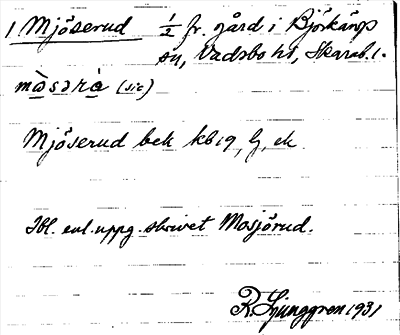 1 Mjöserud 1/2 fr. gård i Björkängs
sn, Vadsbo hd, Skarab. l.
mɷ̀sərὰ (sic)
Mjöserud bek kb19, lj, ek
Ibl. enl. uppg. skrivet Mosjörud.
R. Ljunggren 1931